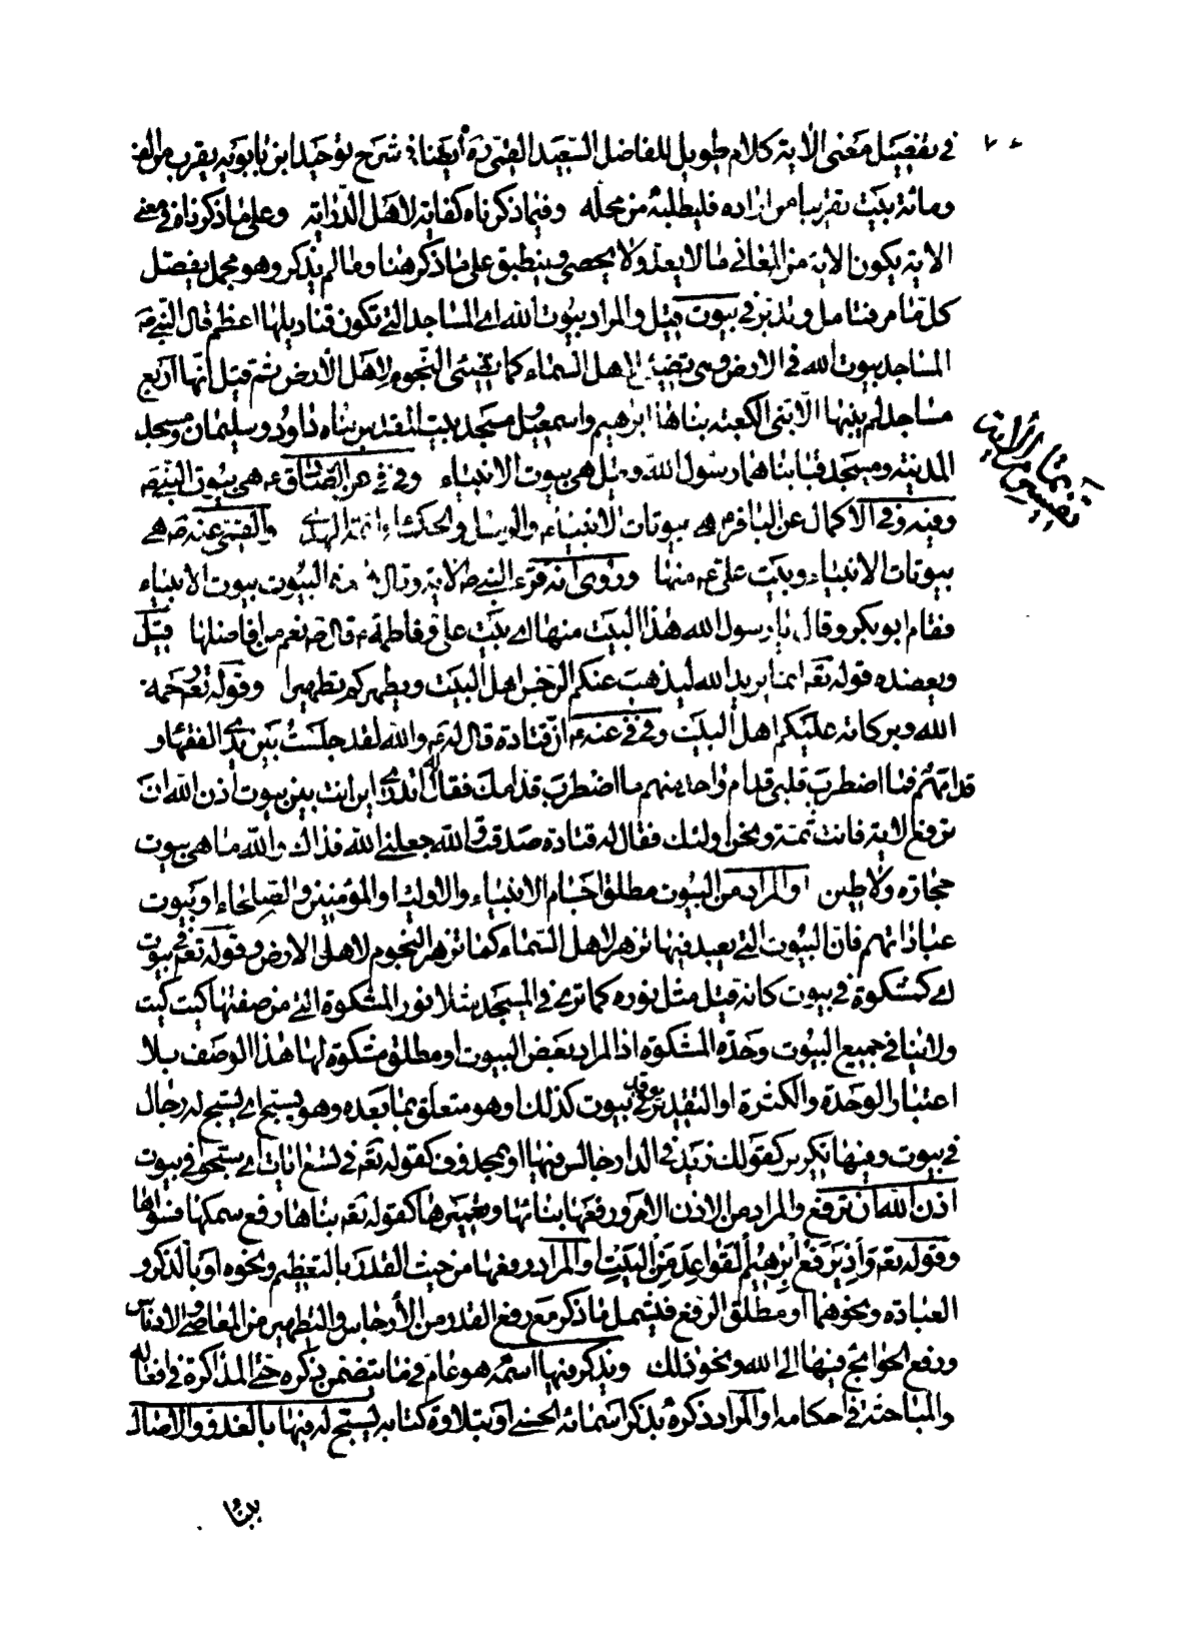 في تفصيل معنى الاية كلام طويل للفاضل السعيد القمي ره أيضا في شرح توحيد ابن بابويه يقرب من الف
ومائة بيت تقريبا من اراده فليطلبه من محله وفيما ذكرناه كفاية لاهل الدراية وعلى ما ذكرناه في معنى
الاية يكون الاية من المعاني ما لا يعد ولا يحصى وينطبق على ما ذكر هنا وما لم يذكر وهو مجمل يفصل
كل مما مر فتامل وتدبر في بيوت قيل والمراد بيوت الله اي المساجد التي تكون قناديلها اعظم قال النبي ص
المساجد بيوت الله في الارض وهي تضيئ لاهل السماء كما يضيئ النجوم لاهل الأرض ثم قيل انها اربع
مساجد لم يبنها الا نبي الكعبة بناها ابرهيم واسمعيل ومسجد بيت المقدس بناه داود وسليمان ومسجد
المدينة ومسجد قبا بناهما رسول الله وقيل هي بيوت الانبياء وفي في عن الصادق ع هي بيوت النبي ص
وفيه وفي الاكمال عن الباقر ع هي بيوتات الانبياء والرسل والحكماء وائمة الهدى والقمي عنه ع هي
بيوتات الانبياء وبيت علي ع منها وروى انه قرء النبي ص الاية وقال هذه البيوت بيوت الانبياء
فقام ابو بكر وقال يا رسول الله هذا البيت منها اي بيت علي وفاطمة ع قال ص نعم من افاضلها قيل
ويعضده قوله تعه انما يريد الله ليذهب عنكم الرجس اهل البيت ويطهركم تطهيرا وقوله تعه رحمة
الله وبركاته عليكم اهل البيت وفي في عنه ع ان قتادة قال له ع والله لقد جلست بين يدي الفقهاء و
قدامهم فما اضطرب قلبي قدام واحد منهم ما اضطرب قدامك فقال له اتدري اين انت بين بيوت أذن الله ان
ترفع الاية فانت ثمة ونحن اولئك فقال له قتادة صدقت والله جعلني الله فداك والله ما هي بيوت
حجارة ولا طين او المراد من البيوت مطلق اجسام الانبياء والاولياء والمؤمنين والصلحاء او بيوت
عباداتهم فان البيوت التي يعبد فيها تزهر لاهل السماء كما تزهر النجوم لاهل الارض وقوله تعه في بيوت
اي كمشكوة في بيوت كانه قيل مثل نوره كما ترى في المسجد مثلا نور المشكوة التي من صفتها كيت كيت
ولا ينافي جميع البيوت وحدة المشكوة اذ المراد بعض البيوت او مطلق مشكوة لها هذا الوصف بلا
اعتبار الوحدة والكثرة او التقدير توقد في بيوت كذلك او هو متعلق بما بعده وهو يسبح اي يسبح له رجال
في بيوت وفيها تكرير كقولك زيد في الدار جالس فيها او بمحذوف كقوله تعه في تسع ايات اي سبحوا في بيوت
اذن الله ان ترفع والمراد من الاذن الامر ورفعها بنائها وتعميرها كقوله تعه بناها رفع سمكها فسواها
وقوله تعه وأذ يرفع ابرهيم القواعد من البيت او المراد رفعها من حيث القدر بالتعظيم ونحوه او بالذكر و
العبادة ونحوهما او مطلق الرفع فيشمل ما ذكر مع رفع القدر من الأرجاس والتطهير من المعاصي والادناس
ورفع الحوائج فيها الى الله ونحو ذلك ويذكر فيها اسمه هو عام في ما يتضمن ذكره حتى المذاكرة في افعاله
والمباحثة في احكامه او المراد ذكره بذكر اسمائه الحسنى او بتلاوة كتابه يسبح له فيها بالغدو والاصال